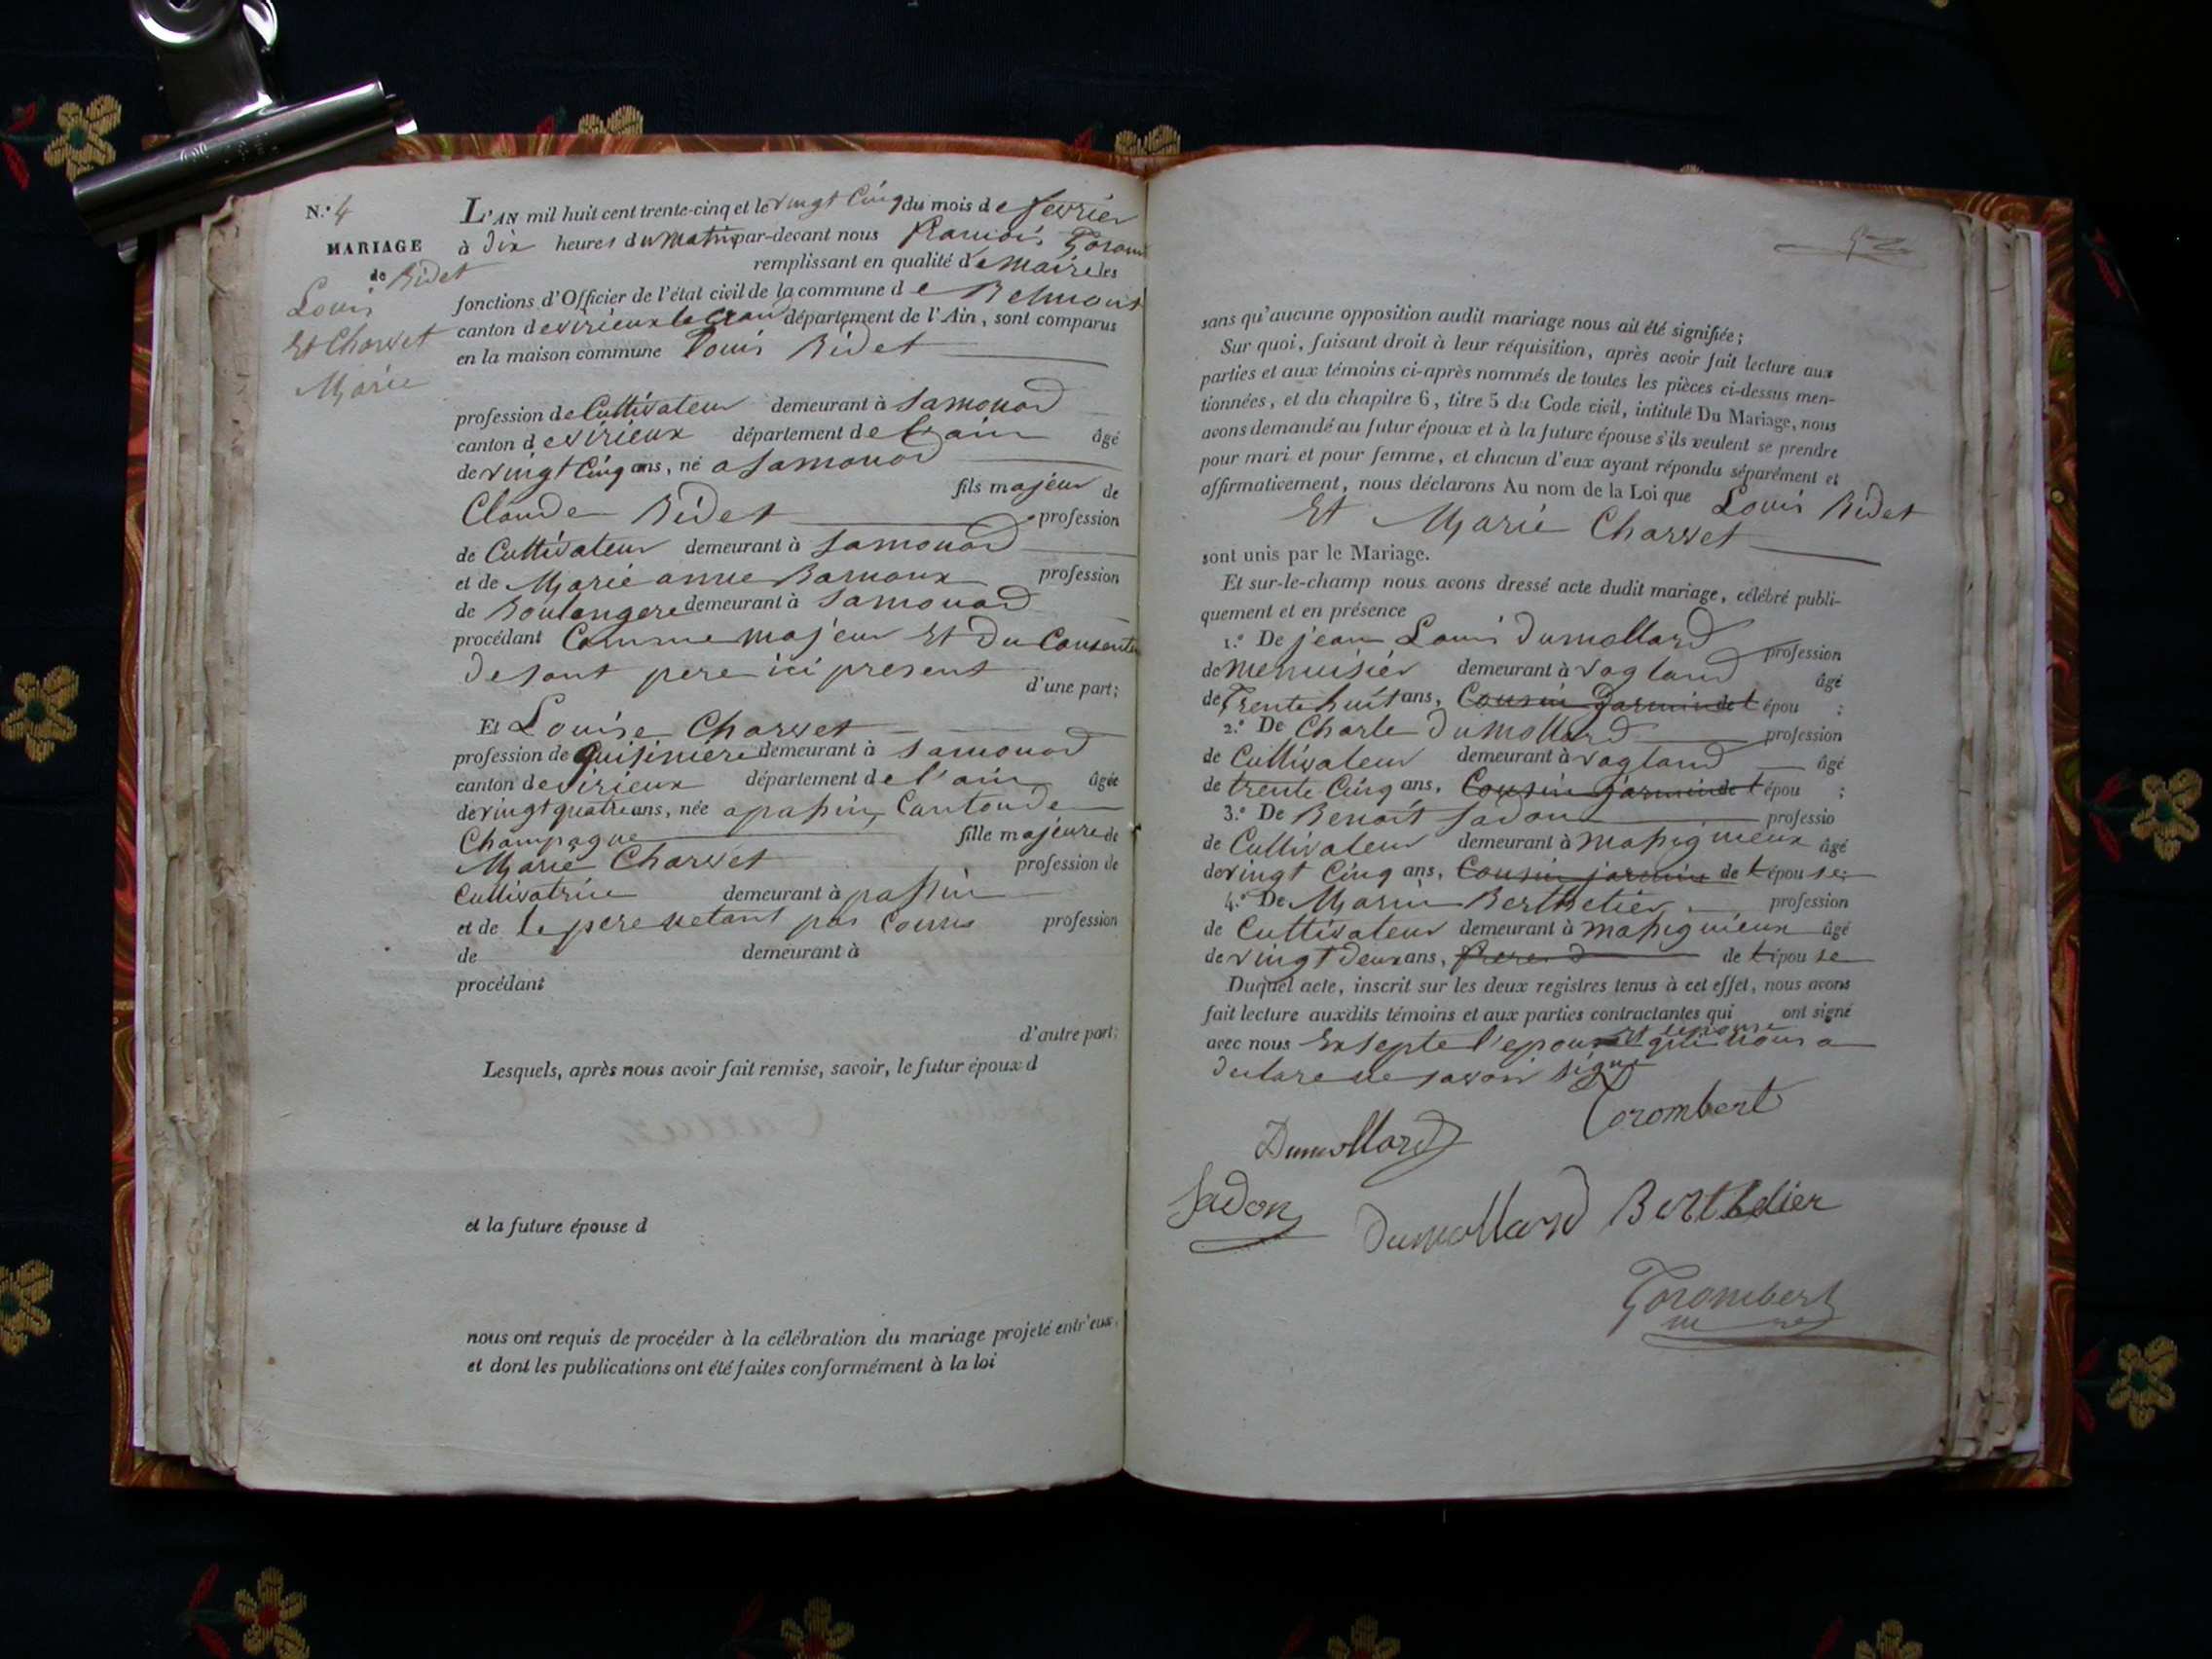 N.º 4
MARIAGE
de Bidet
Louis
Et Charvet
Marie
L'AN mil huit cent trente-cinq et le vingt Cinq du mois de fevrier
à dix heures du Matin par-devant nous francois
remplissant en qualité de Maire les
fonctions d'Officier de l'état civil de la commune de Belmont
canton de virieux le Gran département de l'Ain, sont comparus
en la maison commune Louis Bidet
profession de Cultivateur demeurant à Samonod
canton de virieux département de l'ain âgé
de vingt Cinq ans, né a Samonod
fils majeur de
Claude Bidet profession
de Cultivateur demeurant à Samonod
et de Marie anne profession
de Boulangere demeurant à Samonod
procédant Comme majeur Et du
de sont pere ici present
d'une part;
Et Louise Charvet
profession de quisiniere demeurant à Samonod
canton de virieux département de l'ain âgée
de vingt quatre ans, née a passin, Canton de
Champagne fille majeure de
Marie Charvet profession de
Cultivatrice demeurant à passin
et de le pere netant pas Connu profession
de demeurant à
procédant
d'autre part;
Lesquels, après nous avoir fait remise, savoir, le futur époux d
et la future épouse d
nous ont requis de procéder à la célébration du mariage projeté entr'eux,
et dont les publications ont été faites conformément à la loi
sans qu'aucune opposition audit mariage nous ait été signifiée;
Sur quoi, faisant droit à leur réquisition, après avoir fait lecture aux
parties et aux témoins ci-après nommés de toutes les pièces ci-dessus men-
tionnées, et du chapitre 6, titre 5 du Code civil, intitulé Du Mariage, nous
avons demandé au futur époux et à la future épouse s'ils veulent se prendre
pour mari et pour femme, et chacun d'eux ayant répondu séparément et
affirmativement, nous déclarons Au nom de la Loi que Louis Bidet
Et Marie Charvet
sont unis par le Mariage.
Et sur-le-champ nous avons dressé acte dudit mariage, célébré publi-
quement et en présence
1.º De jean Louis Dumollard profession
de Menuisier demeurant à vogland âgé
de Trente huit ans, Cousin Jarmin de l épou ;
2.º De Charle Dumollard profession
de Cultivateur demeurant à vogland âgé
de trente Cinq ans, Cousin jarmin de l épou ;
3.º De Benoit Sadon professio
de Cultivateur demeurant à Massignieux âgé
de vingt Cinq ans, Cousin jarmin de l épou se;
4.º De Marin Berthelier profession
de Cultivateur demeurant à massignieux âgé
de vingt deux ans, frere d de l épou se
Duquel acte, inscrit sur les deux registres tenus à cet effet, nous avons
fait lecture auxdits témoins et aux parties contractantes qui ont signé
avec nous Exsepte l'epoux et lepouse qui nous a
declare ne savoir signe
Corombert
Dumollard
Sadon
Dumollard Berthelier